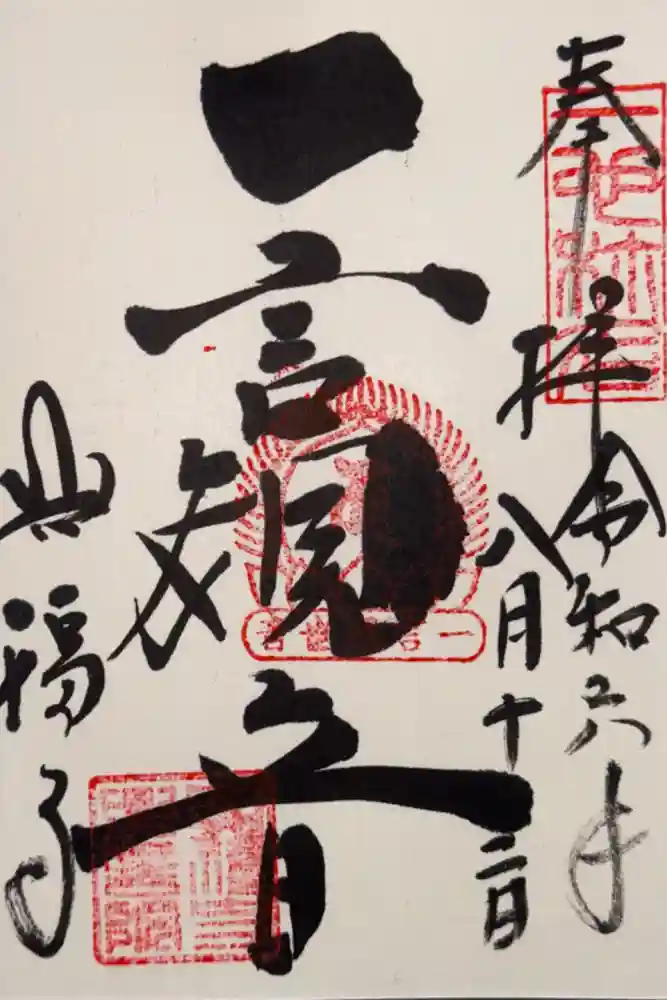 奉拝
令和六年
八月十二日
一言観音
興福寺